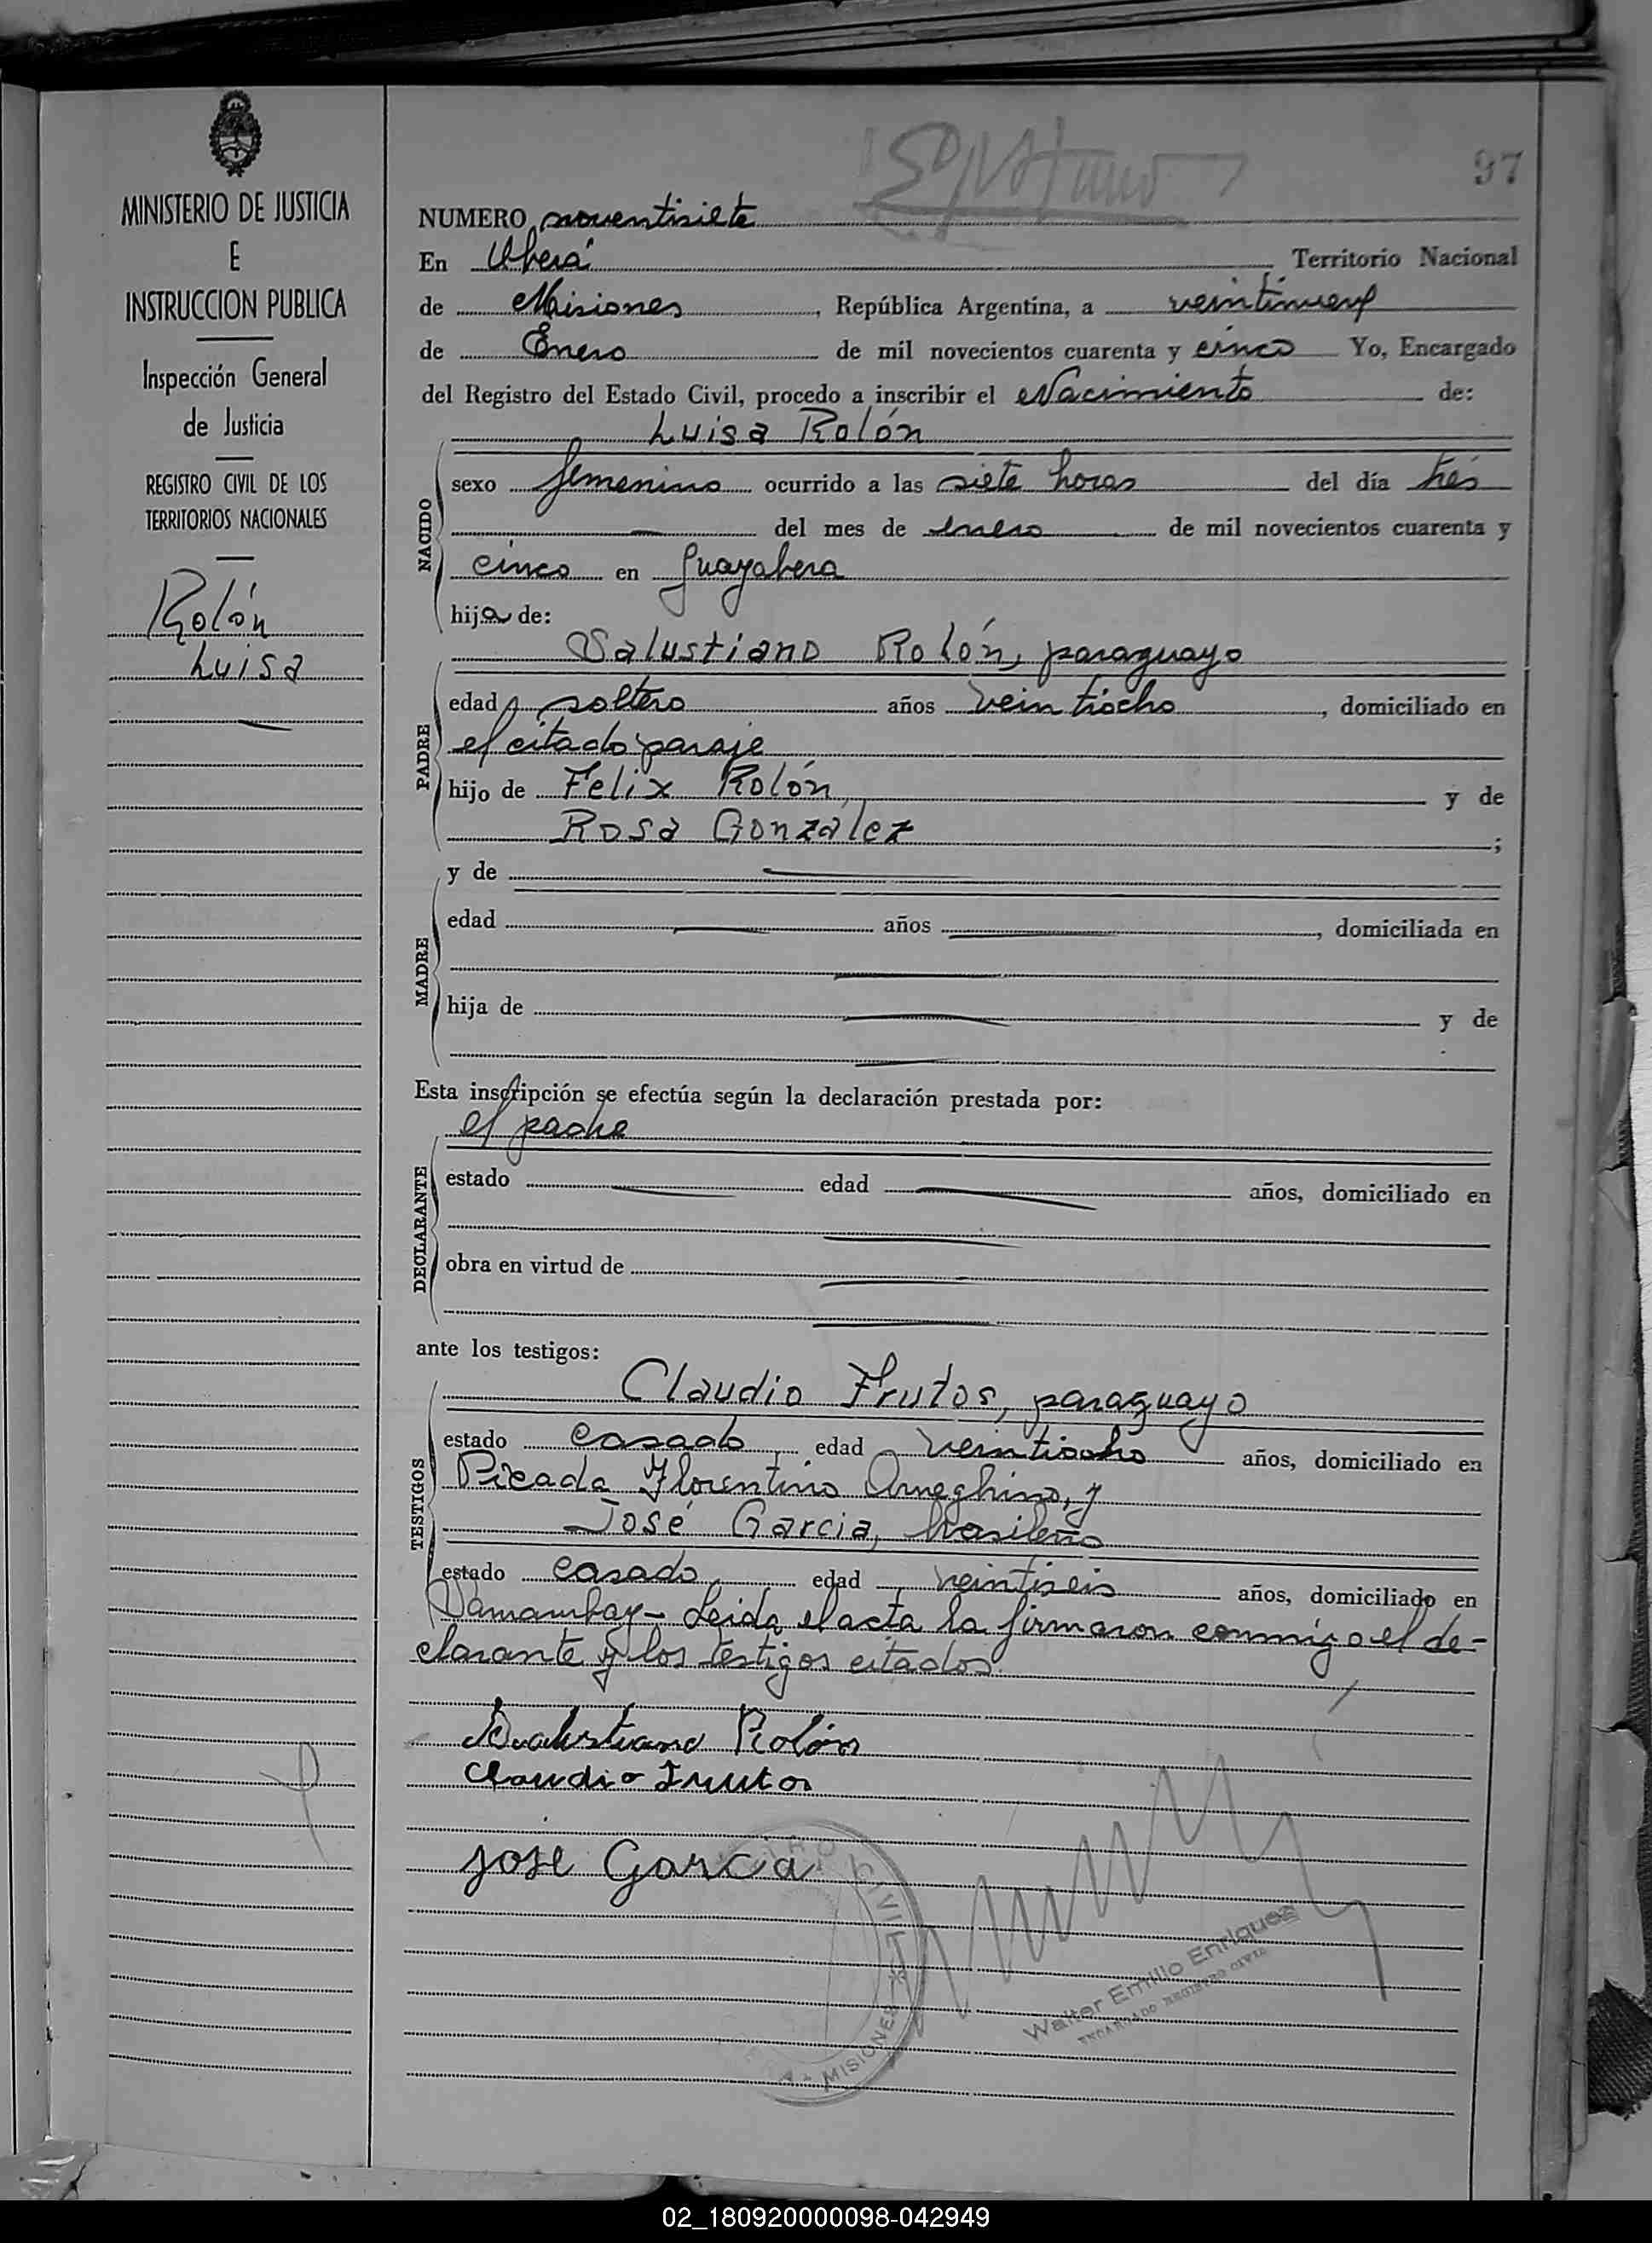 97
MINISTERIO DE JUSTICIA
E
INSTRUCCION PUBLICA
Inspección General
de Justicia
REGISTRO CIVIL DE LOS
TERRITORIOS NACIONALES
Rolón
Luisa
NUMERO noventisiete
En Oberá Territorio Nacional
de Misiones, República Argentina, a veintinueve
de Enero de mil novecientos cuarenta y cinco Yo, Encargado
del Registro del Estado Civil, procedo a inscribir el Nacimiento de:
Luisa Rolón
NACIDO
sexo femenino ocurrido a las siete horas del día tres
del mes de enero de mil novecientos cuarenta y
cinco en Guayabera
hija de:
Salustiano Rolón, paraguayo
PADRE
edad, soltero años veintiocho, domiciliado en
el citado paraje
hijo de Felix Rolón, y de
Rosa González;
MADRE
y de
edad años, domiciliada en
hija de y de
Esta inscripción se efectúa según la declaración prestada por:
el padre
DECLARANTE
estado edad años, domiciliado en
obra en virtud de
ante los testigos:
Claudio Frutos, paraguayo
TESTIGOS
estado casado, edad veintiocho años, domiciliado en
Picada Florentino Ameghino, y
José Garcia, brasileño
estado casado, edad, veintiseis años, domiciliado en
Samambay - Leida el acta la firmaron conmigo el de-
clarante y los testigos citados.
Salustiano Rolón
Claudio Frutos
José Garcia
REGISTRO CIVIL * MISIONES
Walter Emilio Enriquez
ENCARGADO REGISTRO CIVIL
02_180920000098-042949